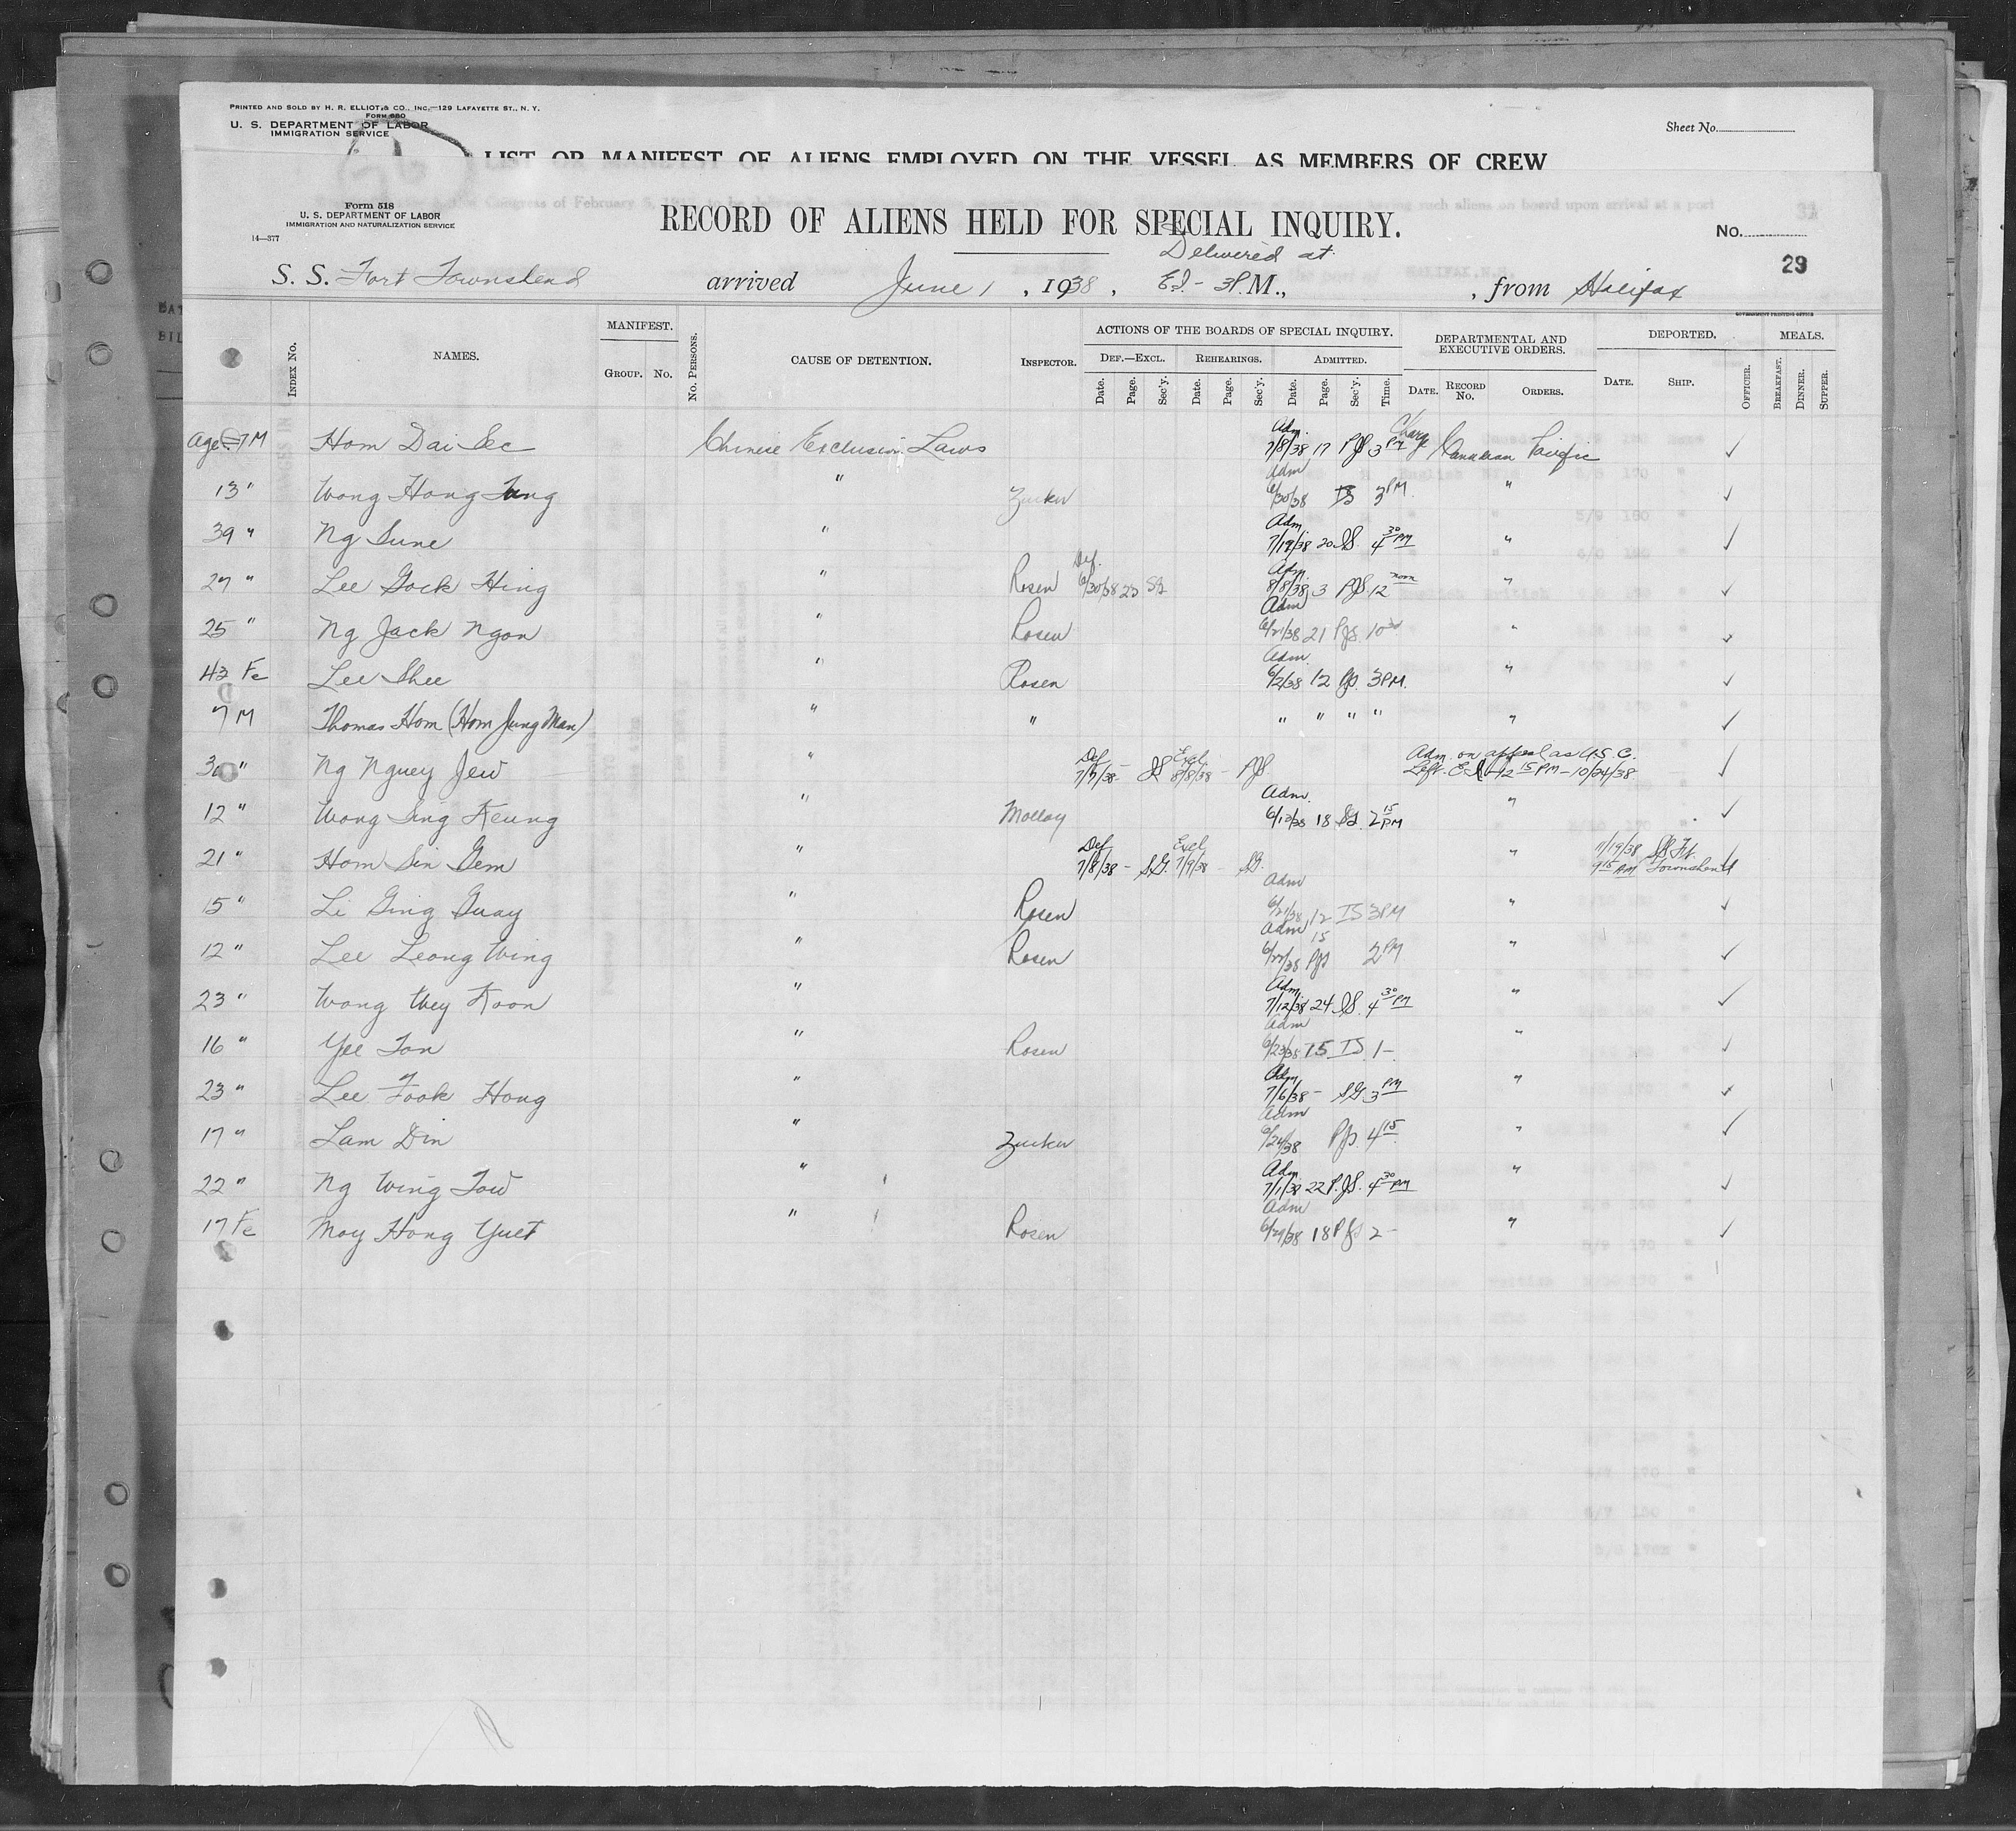 PRINTED AND SOLD BY H. R. ELLIOT & CO., INC.—129 LAFAYETTE ST., N. Y.
FORM 680
U. S. DEPARTMENT OF LABOR
IMMIGRATION SERVICE
Sheet No.
LIST OR MANIFEST OF ALIENS EMPLOYED ON THE VESSEL AS MEMBERS OF CREW
Form 518
U. S. DEPARTMENT OF LABOR
IMMIGRATION AND NATURALIZATION SERVICE
14—377
RECORD OF ALIENS HELD FOR SPECIAL INQUIRY.
No.
29
Delivered at
S. S. Fort Townshend arrived June 1, 1938, E.I. - 3 P.M., from Halifax
GOVERNMENT PRINTING OFFICE
INDEX No. NAMES. MANIFEST. GROUP. No. No. PERSONS. CAUSE OF DETENTION. INSPECTOR. ACTIONS OF THE BOARDS OF SPECIAL INQUIRY. DEPARTMENTAL AND EXECUTIVE ORDERS. DEPORTED. MEALS.
DEF.—EXCL. REHEARINGS. ADMITTED.
Date. Page. Sec'y. Date. Page. Sec'y. Date. Page. Sec'y. Time. DATE. RECORD No. ORDERS. DATE. SHIP. OFFICER. BREAKFAST. DINNER. SUPPER.
Age 7 M Hom Dai Sec Chinese Exclusion Laws Adm. 7/8/38 17 PJS 3 PM Charge Canadian Pacific
13 " Wong Hong Tung " Zucker Adm 6/30/38 IS 3 PM "
39 " Ng Sune " Adm 7/19/38 20 IS. 4 30 PM "
27 " Lee Gock Hing " Rosen Def. 6/30/38 23 SG Adm 8/8/38 3 PJS 12 noon "
25 " Ng Jack Ngon " Rosen Adm 6/21/38 21 PJS 10 "
43 Fe Lee Shee " Rosen Adm. 6/2/38 12 PJS. 3 PM. "
7 M Thomas Hom (Hom Jung Man) " " " " " " "
30 " Ng Nguey Jew " Def 7/7/38 - IS Excl. 8/8/38 - PJS Adm. on appeal as U.S.C. Left E.I. 12 15 PM - 10/24/38
12 " Wong Sing Keung " Molloy Adm. 6/13/38 18 SG 2 15 PM "
21 " Hom Sin Gem " Def 7/8/38 - S.G. Excl 7/9/38 - SG. " 7/19/38 9 15 AM SS Ft. Townshend
15 " Li Ging Guay " Rosen Adm 6/21/38 12 IS 3 PM "
12 " Lee Leong Wing " Rosen Adm 6/22/38 15 PJS 2 PM "
23 " Wong They Koon " Adm 7/12/38 24 IS. 4 30 PM "
16 " Yee Ton " Rosen Adm 6/23/38 15 IS 1 - "
23 " Lee Fook Hong " Adm 7/6/38 - SG 3 PM "
17 " Lam Din " Zucker Adm 6/24/38 PJS. 4 15 "
22 " Ng Wing Tow " Adm 7/1/38 22 P.JS. 4 30 PM "
17 Fe Moy Hong Yuet " Rosen Adm 6/29/38 18 PJS 2 - "